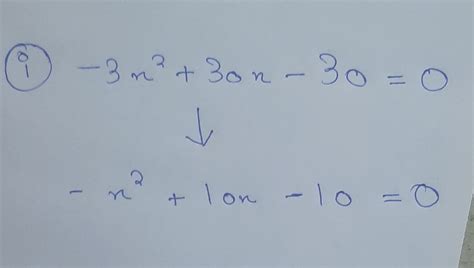 (i) -3x² + 30x - 30 = 0
↓
- x² + 10x - 10 = 0